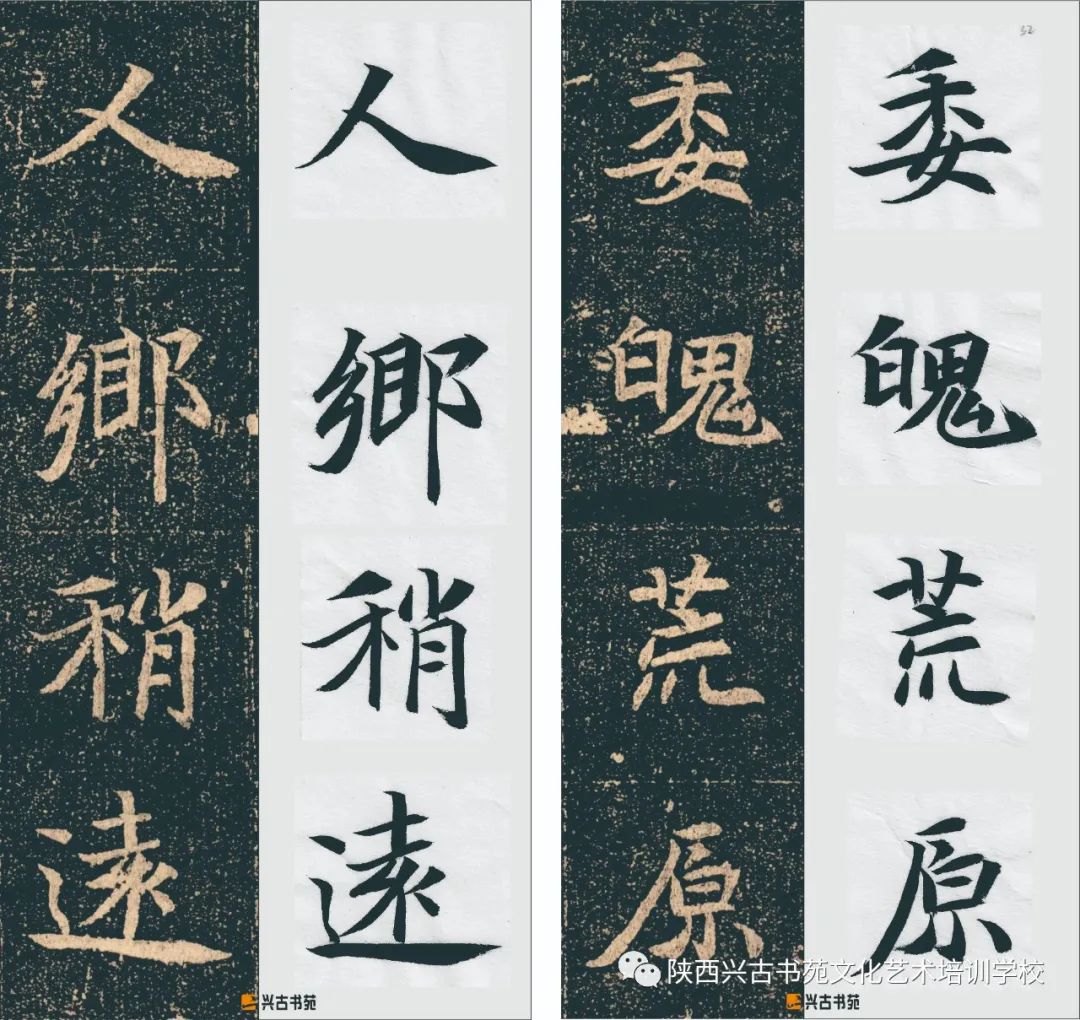 人鄉稍遠
人鄉稍遠
兴古书苑
委魄荒原
委魄荒原
陕西兴古书苑文化艺术培训学校
兴古书苑